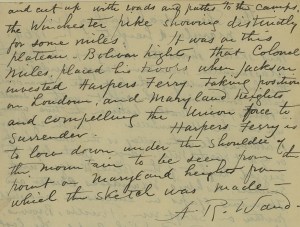 and cut up with roads and paths to the camps,
the Winchester pike showing distinctly
for some miles. It was on this
plateau - Bolivar hights, that Colonel
Miles, placed his troops when Jackson
invested Harpers Ferry, taking position
on Loudoun, and Maryland Heights
and compelling the Union force to
Surrender. Harpers Ferry is
to low down under the shoulder of
the mountain to be seen from the
point on Maryland heights from
which the sketch was made —
A. R. Waud.